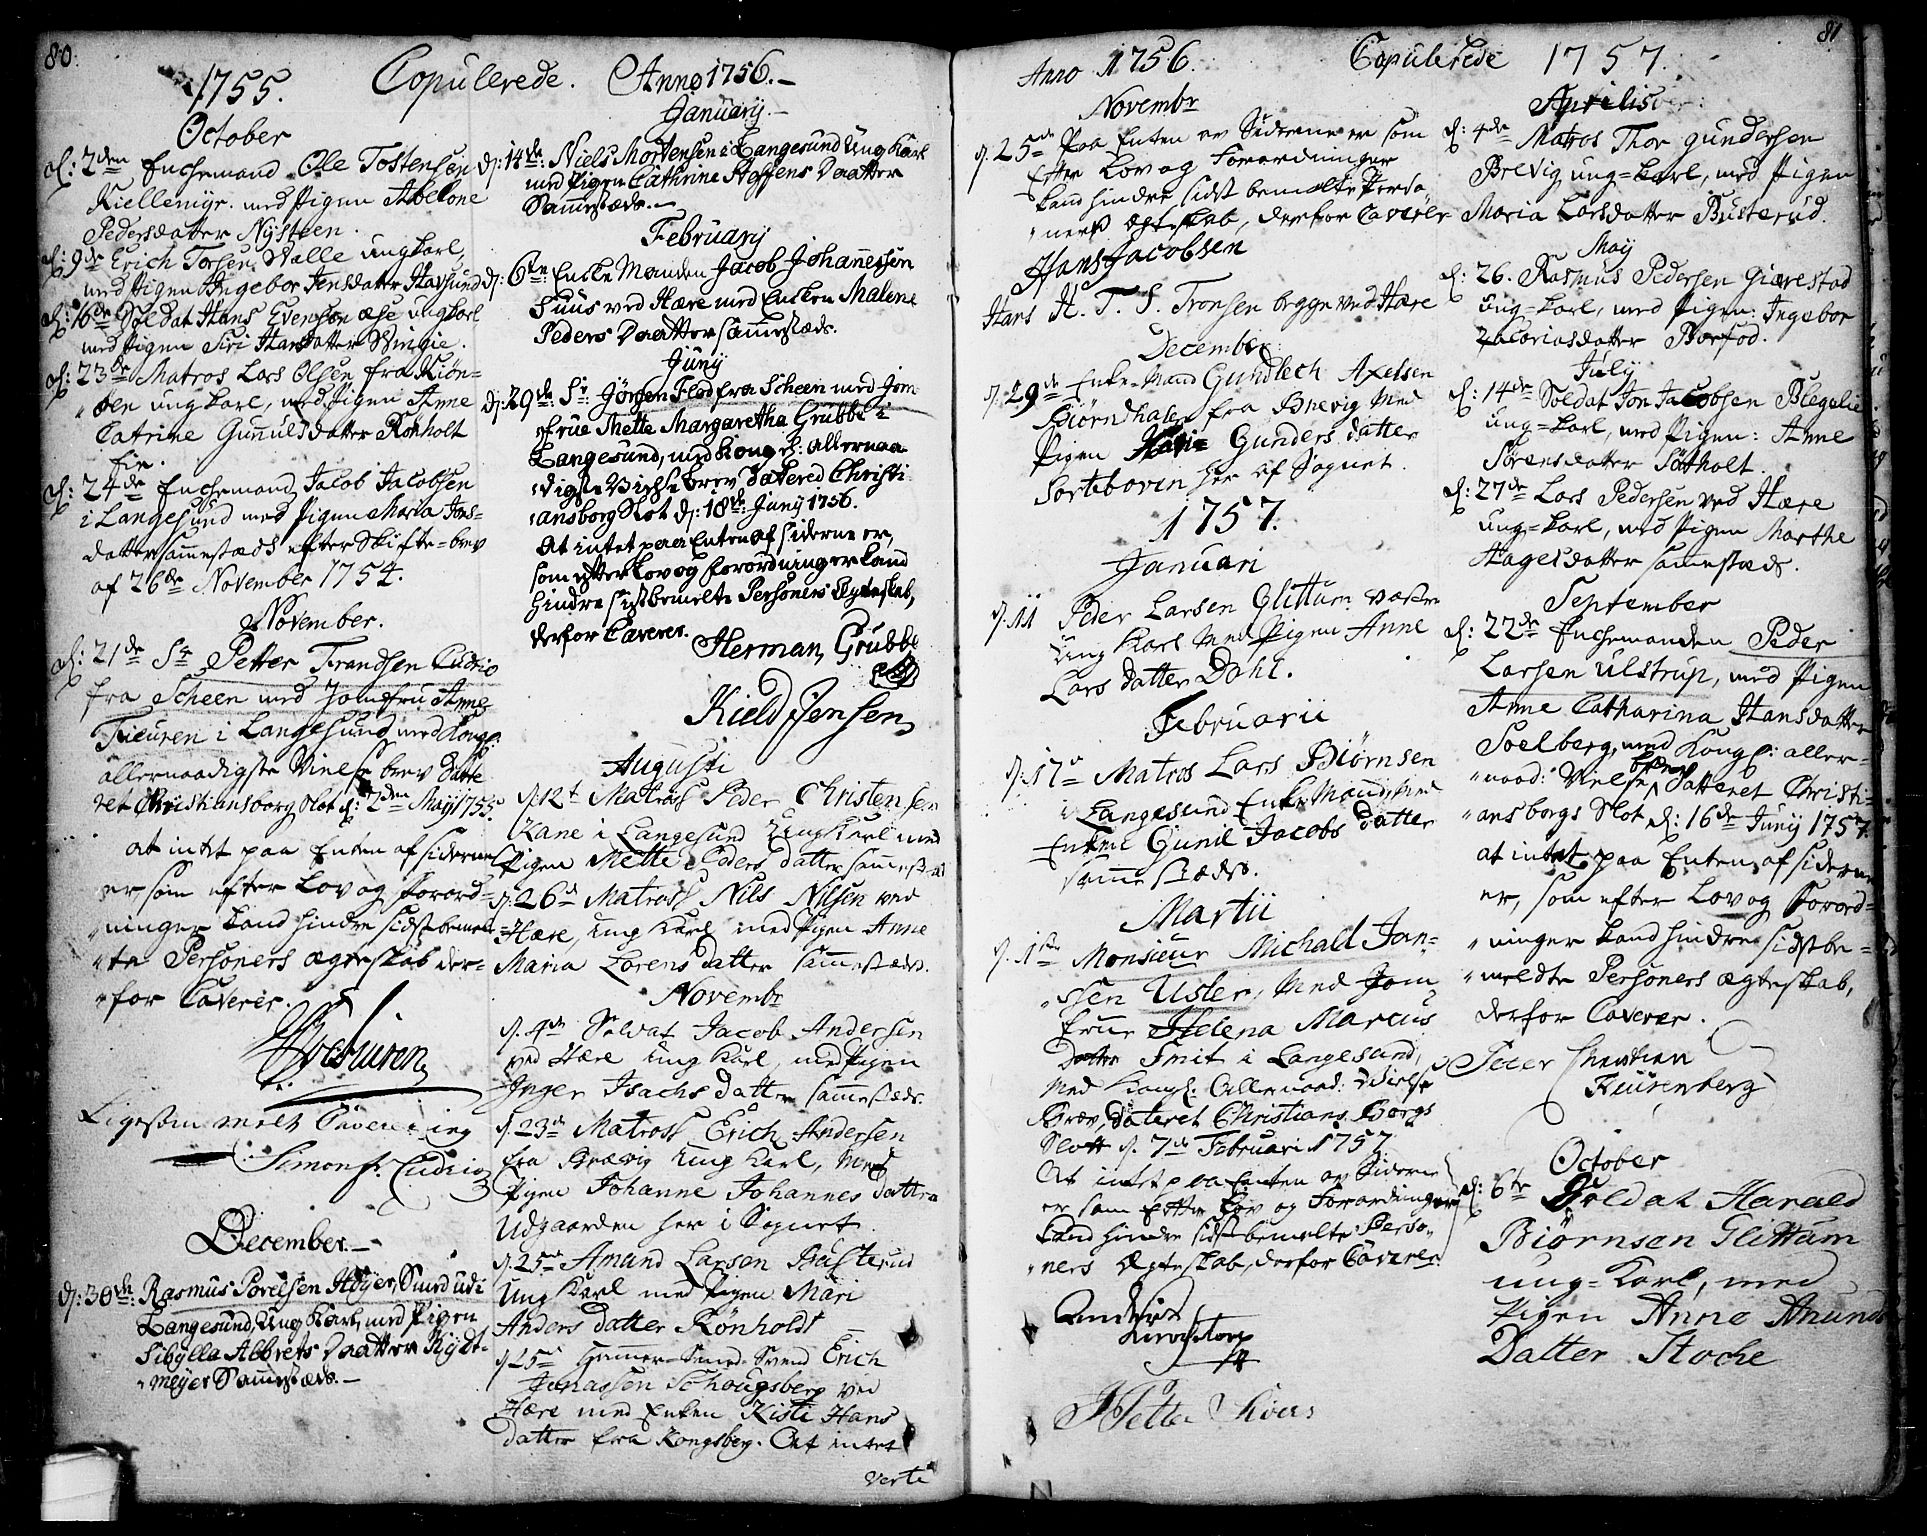 80.
1755. Copulerede. Anno 1756.
October
d: 2den Enchemand Ole Tostensen
Kiellemyr. med Pigen Abelone
Pedersdatter Nysteen.
d: 9de Erich Torsen Valle ungkarl,
med Pigen Ingebor Jensdatter Havsund
d: 16de Soldat Hans Evensøn aese ungkarl
med Pigen Siri Hansdatter Vingie.
d: 23de Matros Lars Olsen fra Kiøn-
ungkarl, med Pigen Anne
Catrine Gunnulsdatter Rønholt
d: 24de Enchemand Jacob Jacobsen
i Langesund med Pigen Maria Jens-
datter sammestæds efter Skifte-brev
af 26de November 1754.
November.
d: 21de Sr Petter Frandsen Cudrio
fra Scheen med Jomfru Anne
Fieuren i Langesund med Kongl:
allernaadigste Vielse brev datte-
ret Christiansborg Slot d: 2den May 1755.
at intet paa Enten af siderne
er som efter Lov og Forord-
ninger kand hindre sidstbemeld-
te Personers ægteskab der-
for Caverer.
Ligesom melt Caverer ieg
Simon fr. Cudrio
December.
d: 30te: Rasmus Povelsen Høyer, Smed udi
Langesund, Ung Karl, med Pigen
Sibylla Albrets Daatter Kydt-
meyer Sammestæds.
January.
d: 14de: Niels Mortensen i Langesund Ung Karl
med Pigen Cathrine Stoffens Daatter
Sammestæds.
February
d: 6te Enke Manden Jacob Johannessen
Suus ved Hære med Enken Malene
Peders Daatter sammestæds.
Juny
d: 29de: Sr Jørgen Flod fra Scheen med Jom-
frue Mette Margaretha Grubbe i
Langesund, med Kongel: allernaa-
digste Vielse brev datered Christi-
ansborg Slot d: 18de: Juny 1756.
At intet paa Enten af siderne er,
som efter Lov og Forordninger kand
hindre sidstbemelte Personers Egteskab,
derfor Caverer.
Herman Grubbe
Kield Jensen
Augusti
d. 12t Matros Peder Christensen
Kane i Langesund Ungkarl med
Pigen Mette Peders datter sammestæd
d. 26d Matros Nils Nilsen ved
Hære, Ung Karl med Pigen Anne
Maria Lorens datter sammestæds.
Novembr
d. 4de Soldat Jacob Andersen
ved Hære Ung Karl med Pigen
Inger Isachs datter sammestæds.
d. 23de Matros Erich Andersen
fra Brævig Ung Karl, med
Pigen Johanne Johannes datter
Udgaarden her i Sognet.
d. 25de Amund Larsen Busterud
Ung Karl med Pigen Mari
Anders datter Rønholdt
d. 25de Hammer-Smed-Svend Erich
Jonassen Schougsberg ved
Hære med Enken Kisti Hans
datter fra Kongsberg. At intet
verte
81
Anno 1756. Copulerede 1757.
Novembr
d. 25de Paa Enten av Siderne er som
Efter Lov og Forordninger
kand hindre sidst bemelte Perso-
ners Egteskab, derfor Caverer
Hans Jacobsen
Hans H. T. S. Tronsen begge ved Hære
December
d. 29de Enke-Mand Gundlech Axelsen
Biørndhalen fra Brevig med
Pigen Kari Gunders datter
Sorteboven her af Sognet.
1757.
Januari
d. 11 Peder Larsen Glittum
Ung Karl med Pigen Anne
Lars datter Dahl.
Februarii
d. 17de Matros Lars Biørnsen
i Langesund Enke Mand, med
Enken Gunil Jacobs datter
samme stæds.
Martii
d. 1ste Monsieur Michall Jan-
ssen Usler, med Jom-
frue Helena Marcus
datter Smit i Langesund,
med Kongl: Allernaad: Vielse
Brev, dateret Christians Borgs
Slott d. 7de Februari 1757.
At intet paa Enten av Siderne
er som Efter Lov og Forordninger
kand hindre sidst bemelte Perso-
ners Egteskab, derfor Caverer
Petter Sivers
Aprilis
d: 4de Matros Thor Gundersen
Brevig ung-karl, med Pigen
Maria Larsdatter Busterud.
May
d: 26. Rasmus Pedersen Giærestad
Ung-karl, med Pigen: Ingebor
Zacoriasdatter Borfod.
July
d: 14de Soldat Jon Jacobsen Blegelie
ung-karl, med Pigen: Anne
Sørensdatter Søtholt.
d: 27de Lars Pedersen ved Hære
ung-karl, med Pigen Marthe
Hagesdatter sammestæds.
September
d: 22de Enchemanden Peder
Larsen Ulstrup, med Pigen
Anne Catharina Hansdatter
Soelberg, med Kongl: aller-
naad: Vielse brev datteret Christi-
ansborgs Slot d: 16de Juny 1757.
at intet paa Enten af siderne
er, som efter Lov og Forord-
ninger kand hindre sidstbe-
meldte Personers ægteskab,
derfor Caverer.
Peter Christian
Fürstenberg
October
d: 6te Soldat Harald
Biørnsen Glittum
ung-karl, med
Pigen Anne Amunds
Datter Stoche